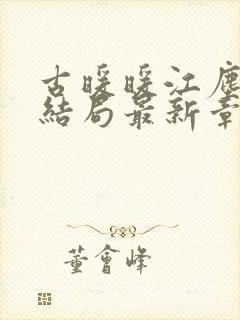 古暖暖江塵
結局最新章
董會峰